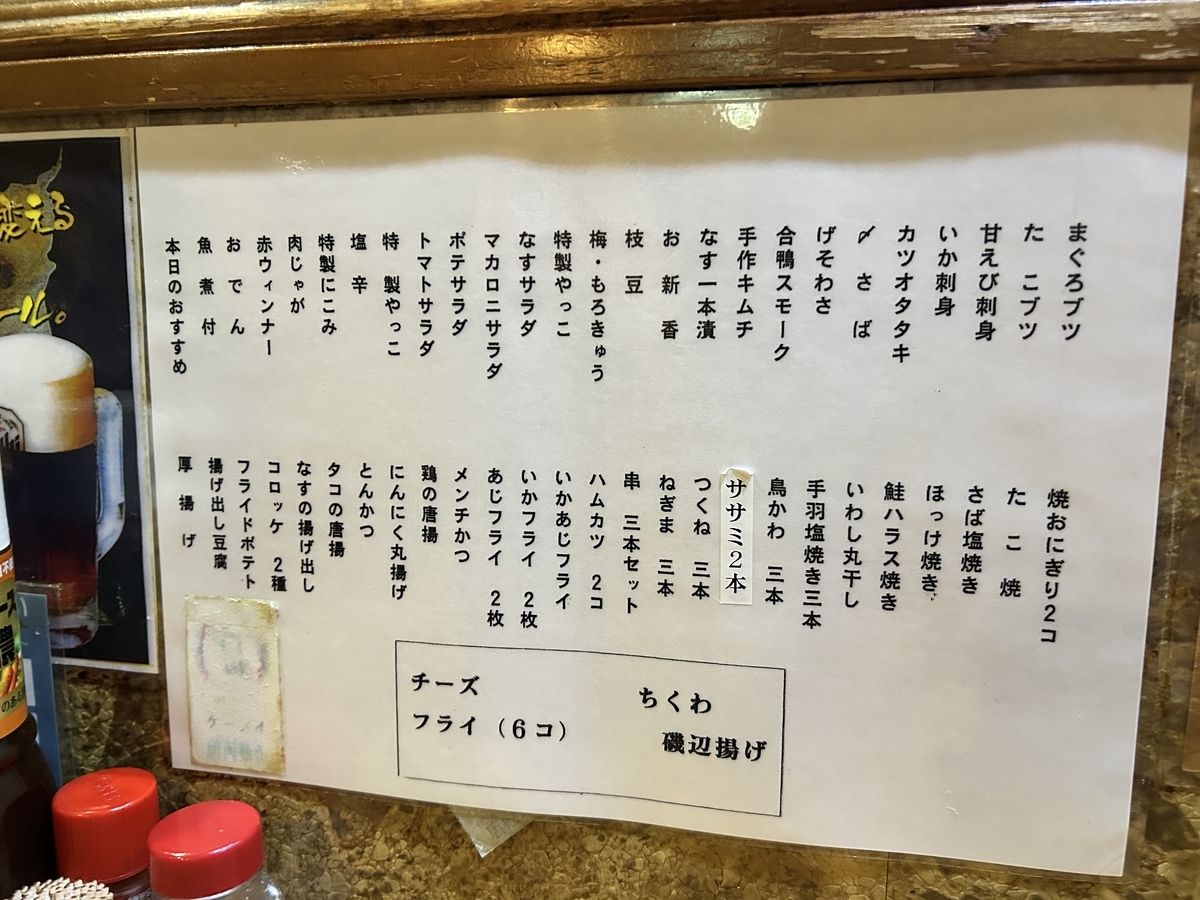 まぐろブツ
たこブツ
甘えび刺身
いか刺身
カツオタタキ
〆さば
げそわさ
合鴨スモーク
手作キムチ
なす一本漬
お新香
枝豆
梅・もろきゅう
特製やっこ
なすサラダ
マカロニサラダ
ポテサラダ
トマトサラダ
特製やっこ
塩辛
特製にこみ
肉じゃが
赤ウィンナー
おでん
魚煮付
本日のおすすめ
焼おにぎり2コ
たこ焼
さば塩焼き
ほっけ焼き
鮭ハラス焼き
いわし丸干し
手羽塩焼き三本
鳥かわ 三本
ササミ2本
つくね 三本
ねぎま 三本
串 三本セット
ハムカツ 2コ
いかあじフライ
いかフライ 2枚
あじフライ 2枚
メンチかつ
鶏の唐揚
にんにく丸揚げ
とんかつ
タコの唐揚
なすの揚げ出し
コロッケ 2種
フライドポテト
揚げ出し豆腐
厚揚げ
チーズ
フライ(6コ)
ちくわ
磯辺揚げ
変える
ール。